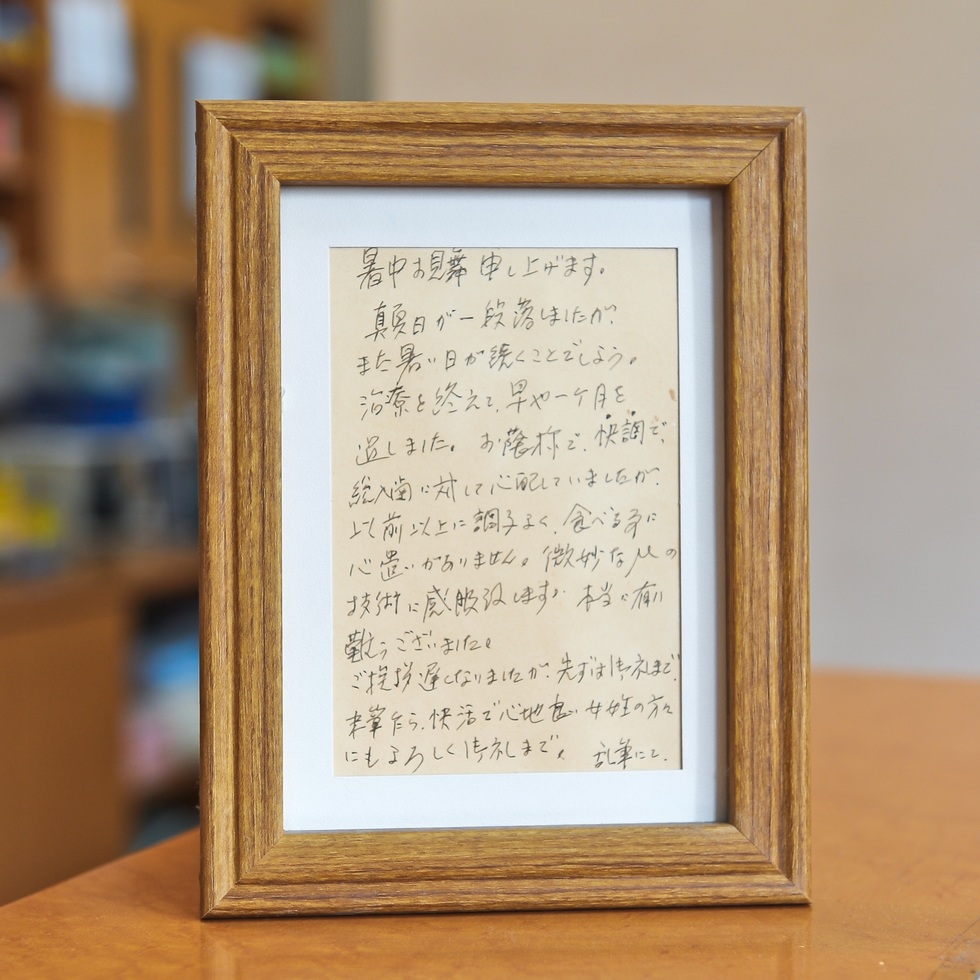 暑中お見舞申し上げます。
真夏日が一段落しましたが、
また暑い日が続くことでしょう。
治療を終えて、早や一ケ月を
過しました。お蔭様で、快調で、
総入歯に対して心配していましたが、
以前以上に調子よく、食べる事に
心遣いがありません。微妙なμの
技術に感服致します。本当に有り
難うございました。
ご挨拶遅くなりましたが、先ずは御礼まで、
末筆乍ら、快活で心地良い女性の方々
にもよろしく御礼まで。乱筆にて、